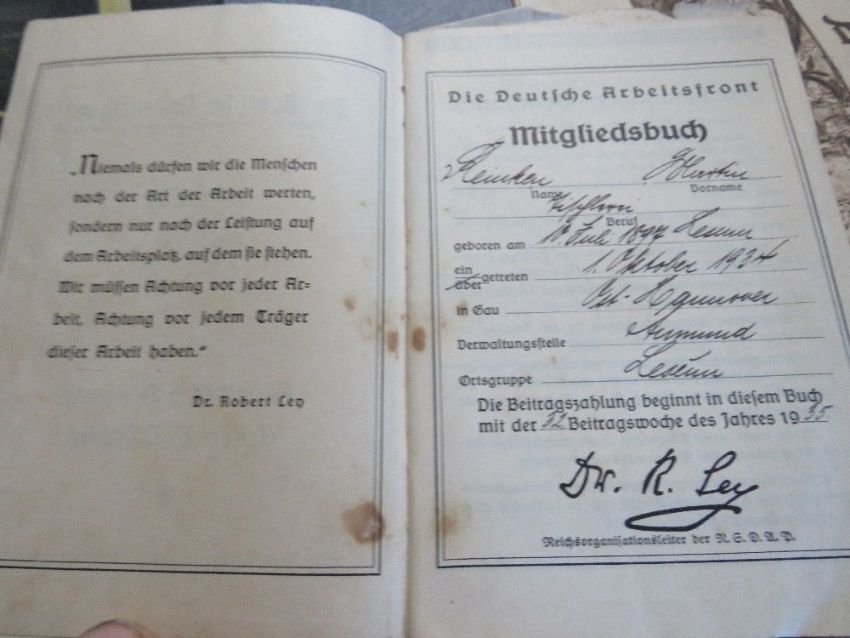 „Niemals dürfen wir die Menschen
nach der Art der Arbeit werten,
sondern nur nach der Leistung auf
dem Arbeitsplatz, auf dem sie stehen.
Wir müssen Achtung vor jeder Ar=
beit, Achtung vor jedem Träger
dieser Arbeit haben.“
Dr. Robert Ley
Die Deutsche Arbeitsfront
Mitgliedsbuch
Reinken Martin
Name Vorname
Beruf
geboren am 10. Juli 1897 Lesum
ein
über getreten 1. Oktober 1934
in Gau Ost-Hannover
Verwaltungsstelle Aumund
Ortsgruppe Lesum
Die Beitragszahlung beginnt in diesem Buch
mit der 32 Beitragswoche des Jahres 1935
Dr. R. Ley
Reichsorganisationsleiter der N. S. D. A. P.